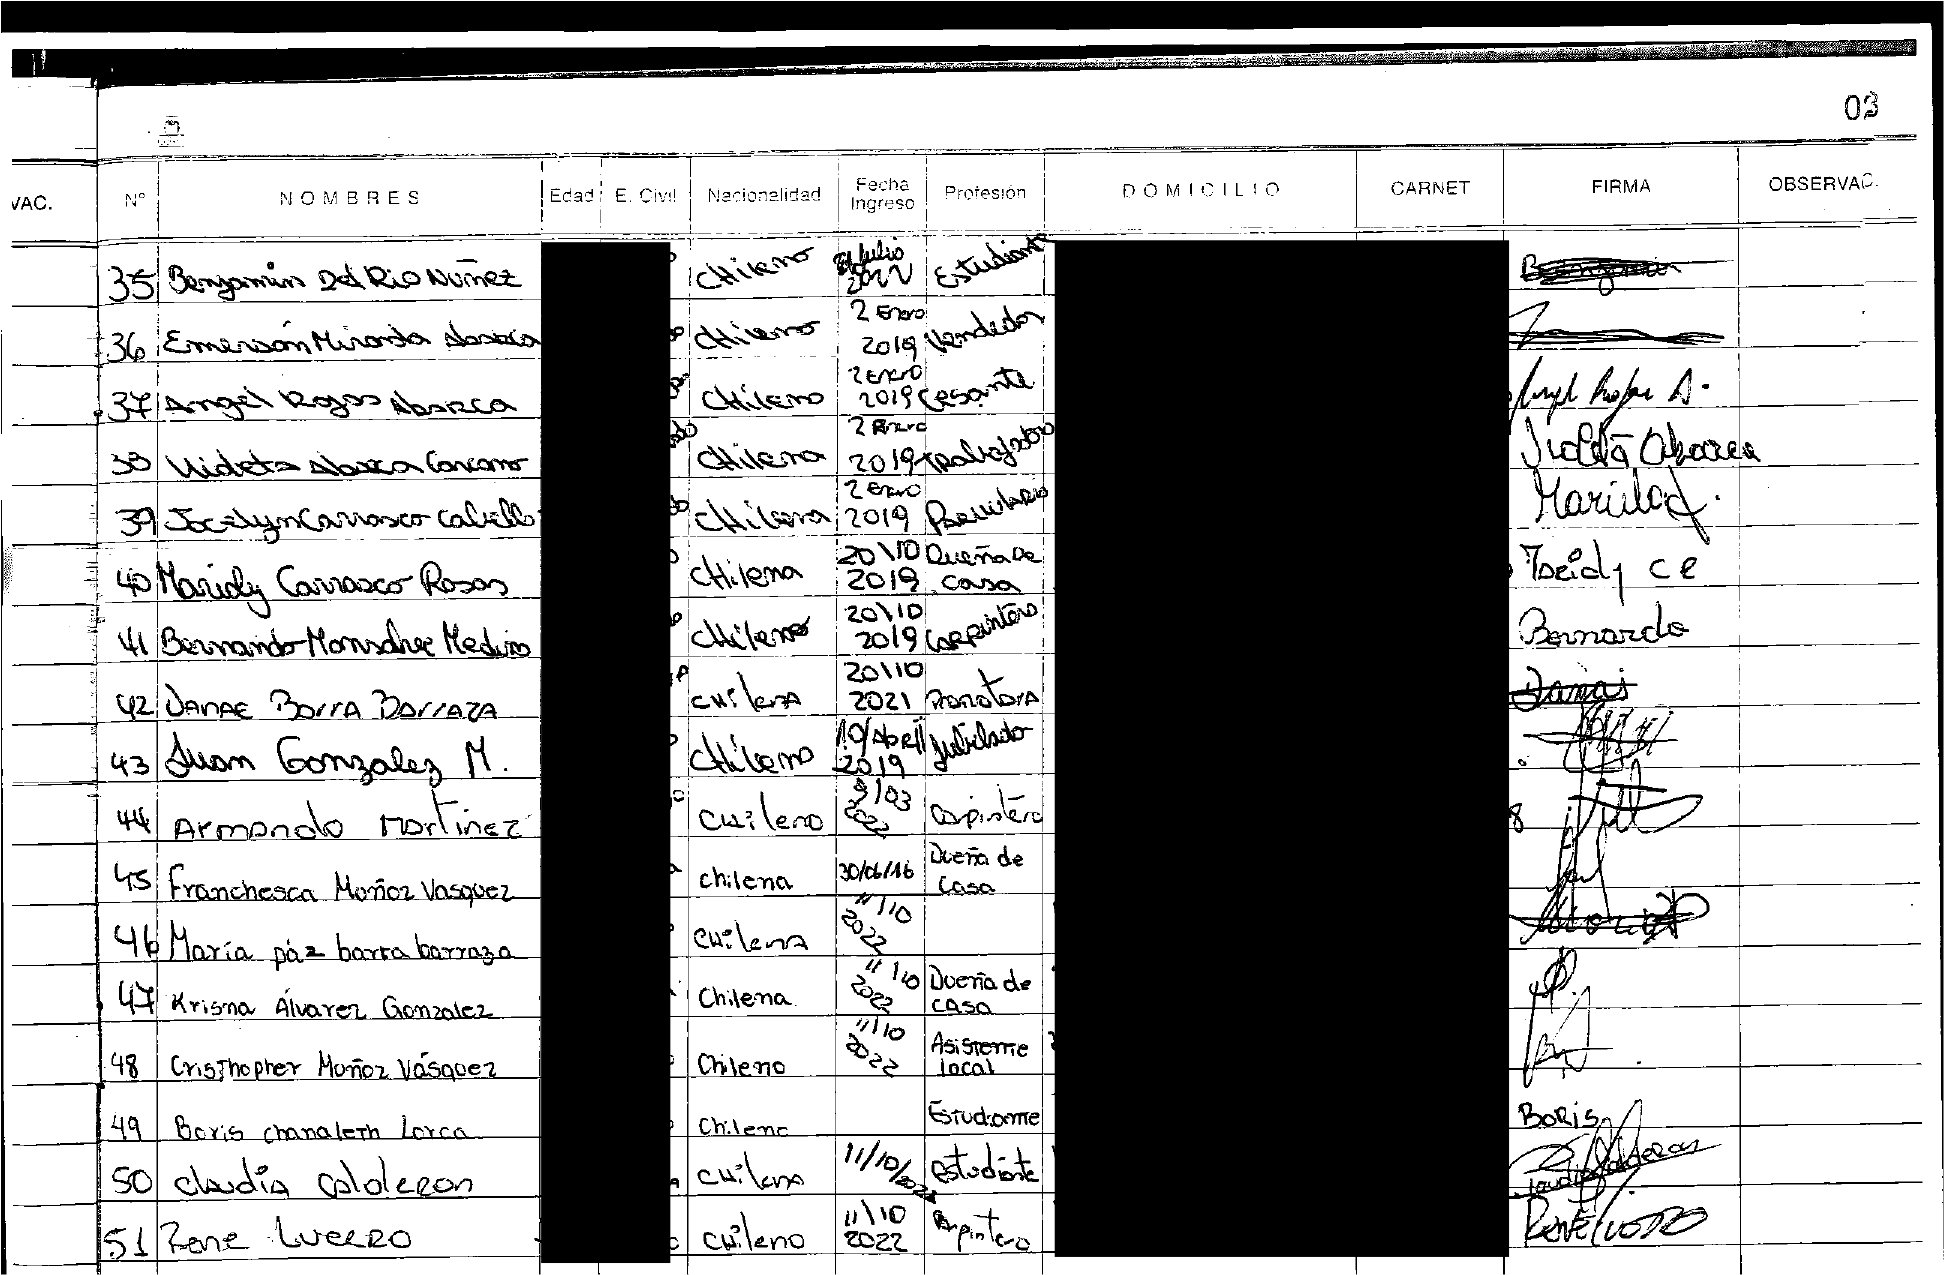 03
VAC. Nº NOMBRES Edad E. Civil Nacionalidad Fecha Ingreso Profesión DOMICILIO CARNET FIRMA OBSERVAC.
35 Benjamín Del Rio Nuñez Chileno Julio 2022 Estudiante
36 Emerson Miranda Abarca Chileno 2 Enero 2019 Vendedor
37 Angel Rojas Abarca Chileno 2 Enero 2019 Cesante Angel Rojas A.
38 Violeta Abarca Carcamo Chilena 2 Enero 2019 trabajadora Violeta Abarca
39 Jocelyn Carrasco Cabello Chilena 2 Enero 2019
40 Maridy Carrasco Rosas Chilena 20\10 2019 Dueña De casa C R
41 Bernardo Monsalve Medina Chileno 20\10 2019 Carpintero Bernardo
42 Danae Barra Barraza chilena 20\10 2021 Promotora Danae
43 Juan Gonzalez M. Chileno 10/Abril 2019 Jubilado
44 Armando Martinez chileno 9/03 2022 Carpintero
45 Franchesca Muñoz Vasquez chilena 30/06/16 Dueña de Casa
46 María páz barra barraza chilena 11/10 2022
47 Krisna Álvarez Gonzalez Chilena 11/10 2022 Dueña de casa
48 Cristhopher Muñoz Vásquez Chileno 11/10 2022 Asistente local
49 Boris chanaleth Lorca Chileno Estudiante Boris
50 claudia calderon chilena 11/10/2022 estudiante claudia calderon
51 Rene Lucero chileno 11\10 2022 Carpintero Rene Lucero